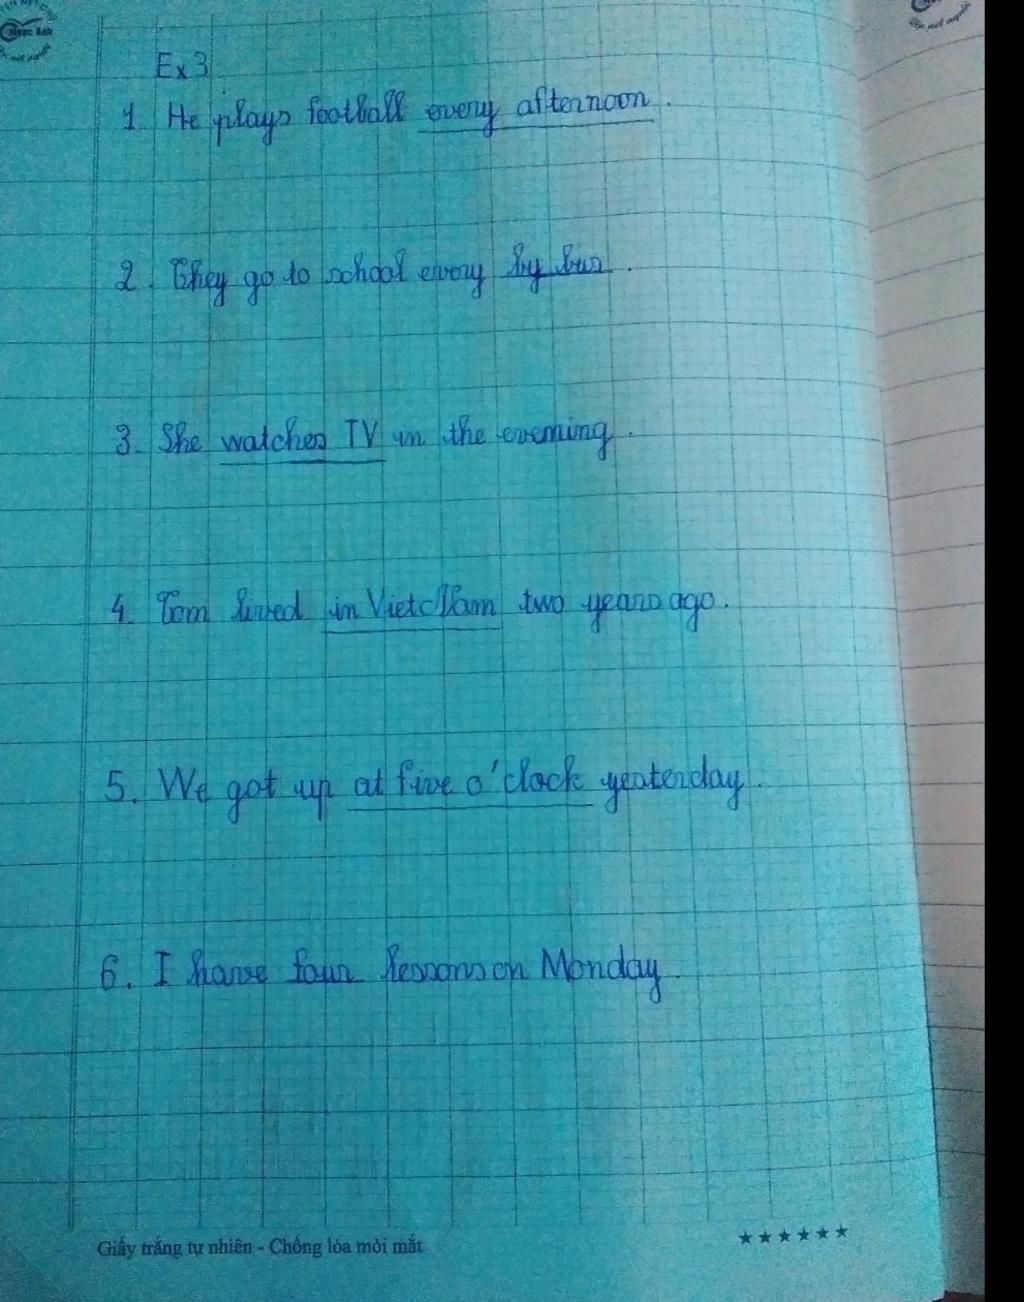 Ngọc Ánh
Ex 3
1. He plays football every afternoon.
2. They go to school every by bus.
3. She watches TV in the evening.
4. Tom lived in Viet Nam two years ago.
5. We got up at five o'clock yesterday.
6. I have four lessons on Monday.
Giấy trắng tự nhiên - Chống lóa mỏi mắt